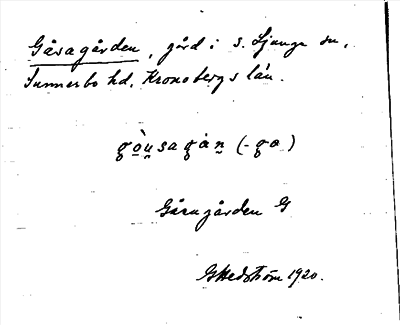 Gåsagården, gård i s. Ljunga sn,
Sunnerbo hd, Kronobergs län.
gòusagàn (-ga)
Gåsagården G
G Hedström 1920.